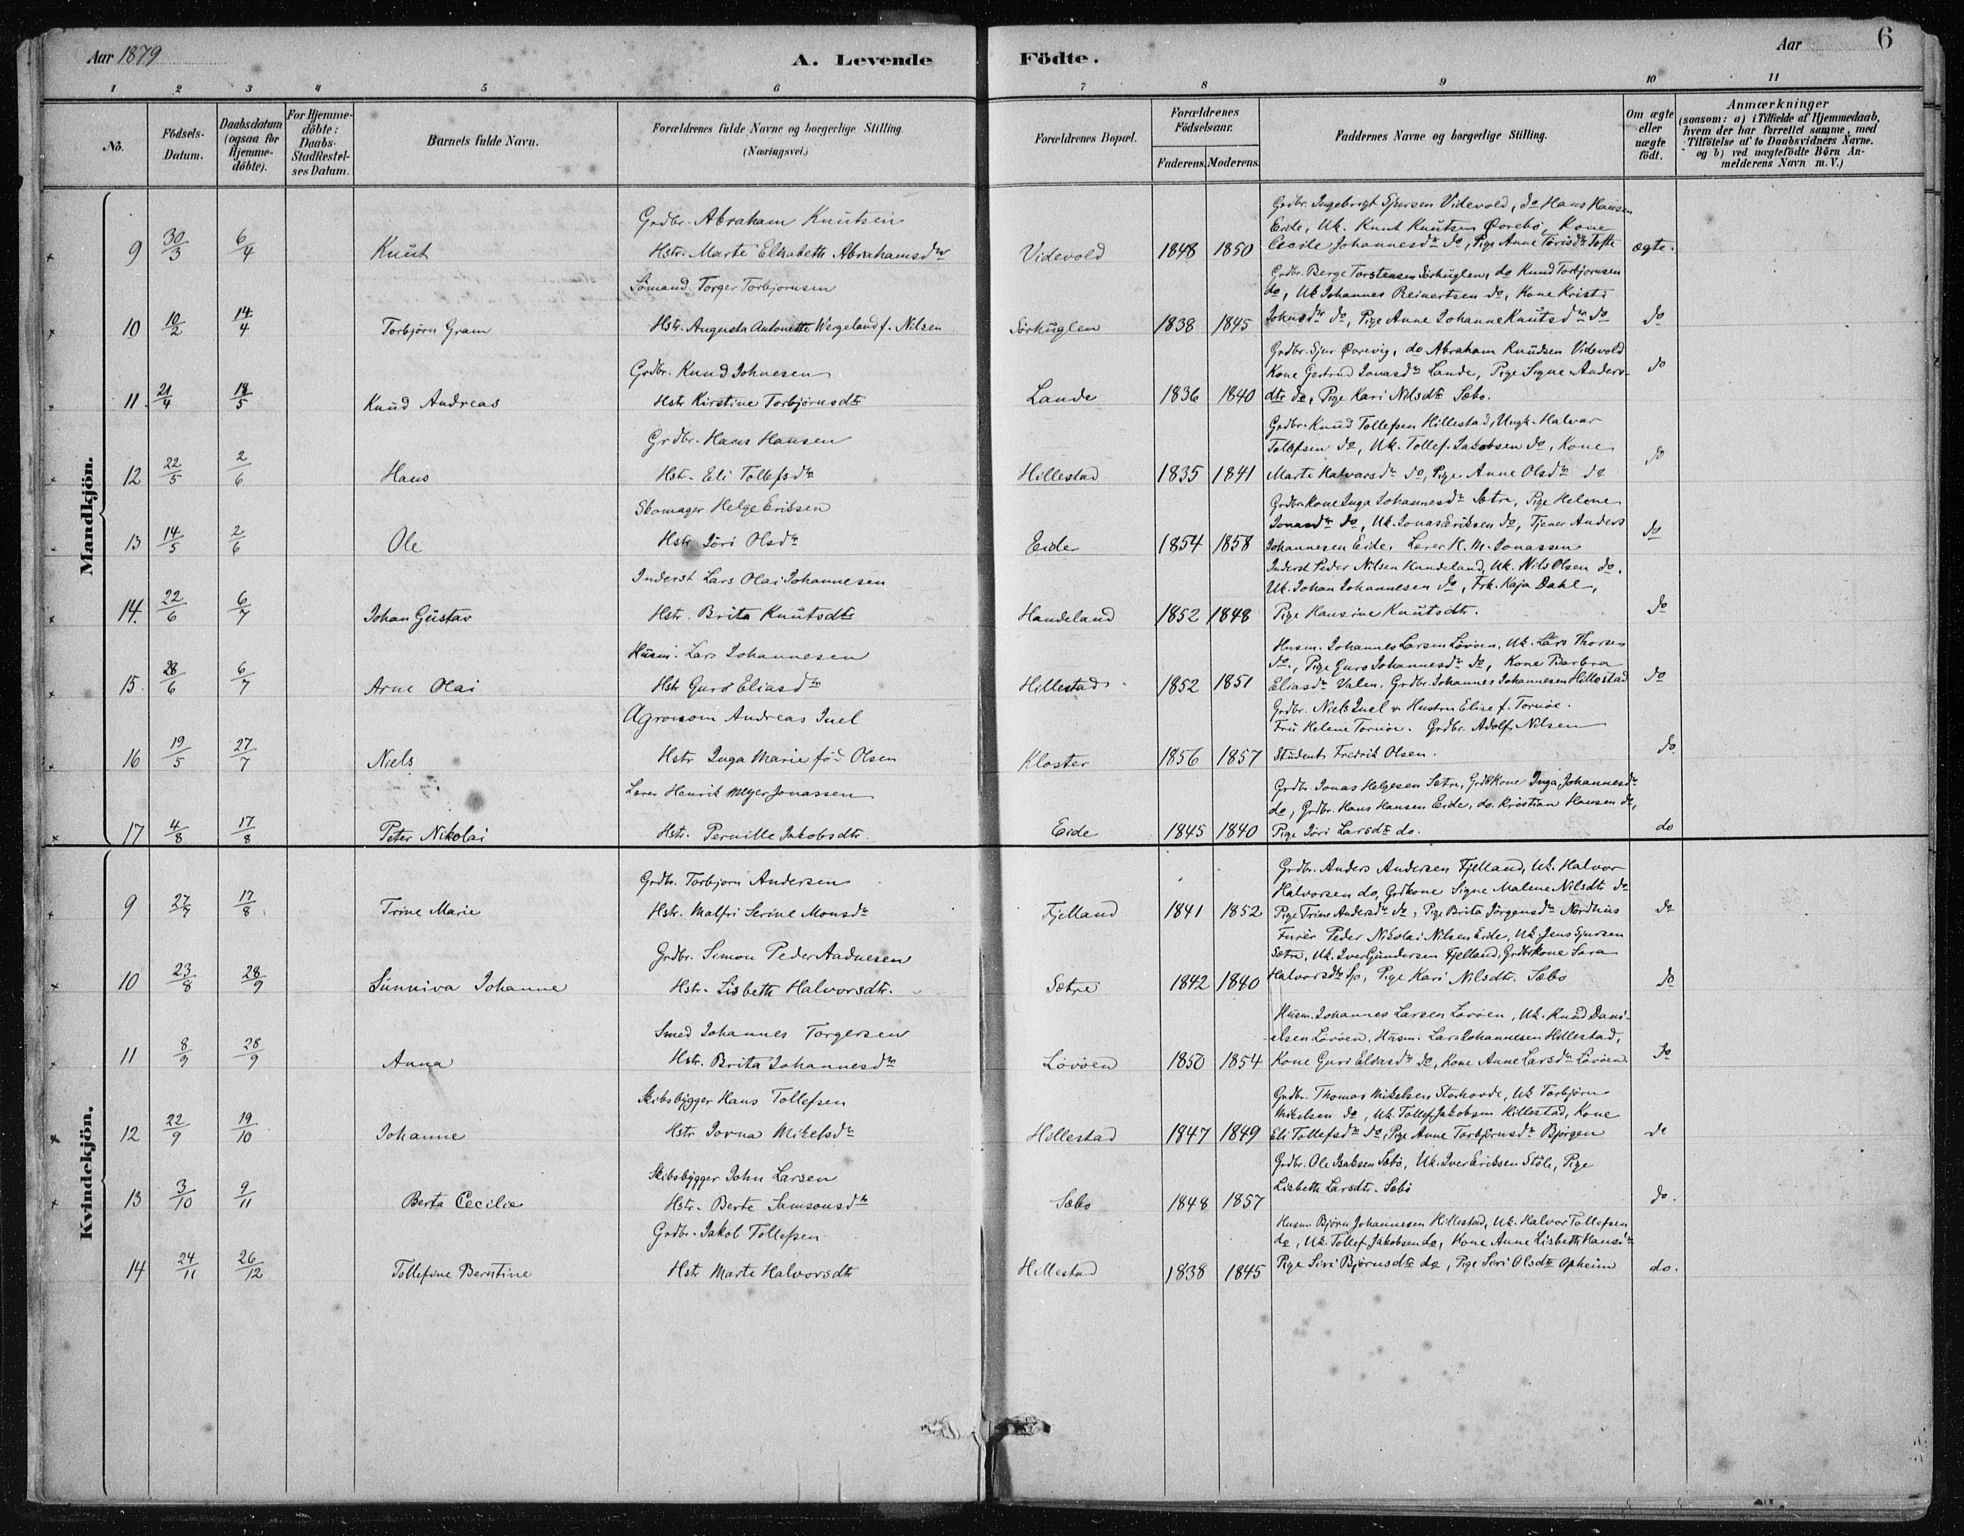 Aar 1879
A. Levende Födte.
Aar
6
1 2 3 4 5 6 7 8 9 10 11
No.
Födsels-Datum.
Daabsdatum (ogsaa for Hjemme-döbte).
For Hjemme-döbte: Daabs-Stadfæstel-ses Datum.
Barnets fulde Navn.
Forældrenes fulde Navne og borgerlige Stilling. (Næringsvei.)
Forældrenes Bopæl.
Forældrenes Födselsaar.
Faderens. Moderens.
Faddernes Navne og borgerlige Stilling.
Om ægte eller uægte födt.
Anmærkninger
(saasom: a) i Tilfælde af Hjemmedaab,
hvem der har forrettet samme, med
Tilföielse af to Daabsvidners Navne.
og b) ved uægtefödte Börn An-
melderens Navn m. V.)
Mandkjön.
9 30/3 6/4 Knut
Grdbr. Abraham Knutsen
Hstr. Marte Elisabeth Abrahamsdtr
Videvold 1848 1850
Grdbr. Ingebrigt Sjursen Videvold, do Hans Hansen
Eide, Uk. Knut Knutsen Øvrebö, Kone
Cecile Johannesdtr do, Pige Anne Torisdtr Tofte
ægte.
10 10/2 14/4 Torbjörn Gram
Sömand Torger Torbjornsen
Hstr. Augusta Antonette Wergeland f. Nilsen
Sörhuglen 1838 1845
Grdbr. Berge Torstensen Sörhuglen, do Knud Torbjornsen
do, Uk Johannes Reinertsen do, Kone Kristi
Johnsdtr do, Pige Anne Johanne Knutsdtr do
do
11. 21/4 18/5 Knud Andreas
Grdbr. Knud Johnesen
Hstr Kirstine Torbjörnsdtr
Lande 1836 1840
Grdbr. Sjur Øvrevig, do Abraham Knudsen Videvold
Kone Gertrud Jonasdtr Lande, Pige Signe Anders-
dtr do, Pige Kari Nilsdtr Sæbö.
do
12 22/5 2/6 Hans
Grdbr. Hans Hansen
Hstr. Eli Tollefsdtr
Hillestad 1835 1841
Grdbr. Knud Tollefsen Hillestad, Ungk. Halvar
Tollefsen do, Uk. Tollef Jakobsen do, Kone
Marte Halvarsdtr do, Pige Anne Olsdtr do
do
13 14/5 2/6 Ole
Skomager Helge Eriksen
Hstr Jöri Olsdtr
Eide 1854 1858
Grdbr Kone Inga Johannesdtr Sætre, Pige Helene
Jonasdtr do, Uk. Jonas Eriksen do, Tjener Anders
Johannesen Eide, Lærer H. M. Jonassen
do
14. 22/6 6/7 Johan Gustav
Inderst Lars Olai Johannesen
Hstr. Brita Knutsdtr
Handeland 1852 1848
Inderst Peder Nilsen Handeland, Uk. Nils Olsen do,
Uk. Johan Johannesen do, Frk. Kaja Dahl,
Pige Hansine Knutsdtr.
do
15. 28/6 6/7 Arne Olai
Husm. Lars Johannesen
Hstr Guro Eliasdtr
Hillestad 1852 1851
Husm. Johannes Larsen Lövöen, Uk. Lars Thorsen
do., Pige Guro Johannesdtr do, Kone Barbra
Eliasdtr Valen. Grdbr. Johannes Johannesen Hillestad
do
16 19/5 27/7 Niels
Agronom Andreas Juel
Hstr Inga Marie föd Olsen
Kloster 1856 1857
Grdbr. Niels Juel & Hustru Elise f. Tornöe.
Fru Helene Tornöe. Grdbr. Adolf Nilsen
Student Fredrik Olsen.
do.
17 4/8 17/8 Peter Nikolai
Lærer Henrik Meyer Jonassen
Hstr. Pernille Jakobsdtr.
Eide 1845 1840
Grdbr. Jonas Helgesen Sætre, Grdbkone Inga Johannesdtr
do, Grdbr. Hans Hansen Eide, do. Kristian Hansen do,
Pige Jöri Larsdtr do.
do
Kvindekjön.
9 27/7 17/8 Trine Marie
Grdbr. Torbjorn Andersen
Hstr. Malfri Serine Monsdtr
Fjelland 1841 1852
Grdbr. Anders Andersen Fjelland, Uk. Halvor
Halvorsen do, Grdkone Signe Malene Nilsdtr do
Pige Trine Andersdtr do, Pige Brita Jörgensdtr Nordhus
do
10 23/8 28/9 Sunniva Johanne
Grdbr. Simon Peder Aadnesen
Hstr. Lisbeth Halvorsdtr.
Sætre 1842 1840
Furér Peder Nikolai Nilsen Eide, Uk Jens Sjursen
Sætre, Uk. Iver Gundersen Fjelland, Grdbrkone Sara
Halvorsdtr do, Pige Kari Nilsdtr. Sæbö
do
11 8/9 28/9 Anna
Smed Johannes Torgersen
Hstr. Brita Johannesdtr
Lövöen 1850 1854
Husm. Johannes Larsen Lövöen, Uk. Knud Dani-
elsen Lövöen, Husm. Lars Johannesen Hillestad,
Kone Guri Eliasdtr do, Kone Anne Larsdtr Lövöen
do
12 22/9 19/10 Johanne
Skibsbygger Hans Tollefsen
Hstr Jorna Mikelsdtr
Hillestad 1847 1849
Grdbr. Thomas Mikelsen Storhovde, Uk Torbjörn
Mikelsen do, Uk. Tollef Jakobsen Hillestad, Kone
Eli Tollefsdtr do, Pige Anne Torbjörnsdtr Bjorgen
do
13 3/10 9/11 Berta Cecilie
Skibsbygger John Larsen
Hstr. Berte Samsonsdtr
Sæbö 1848 1857
Grdbr. Ole Isaksen Sæbö, Uk. Iver Eriksen Stöle, Pige
Lisbeth Larsdtr. Sæbö
do.
14 24/11 26/12 Tollefine Berntine
Grdbr. Jakob Tollefsen
Hstr Marte Halvorsdtr
Hillestad 1838 1845
Husm Björn Johannesen Hillestad, Uk. Halvor Tollefsen
do, Uk. Tollef Jakobsen do, Kone Anne Lisbeth Hansdtr
Pige Siri Björnsdtr do, Pige Seri Olsdtr Opheim
do.